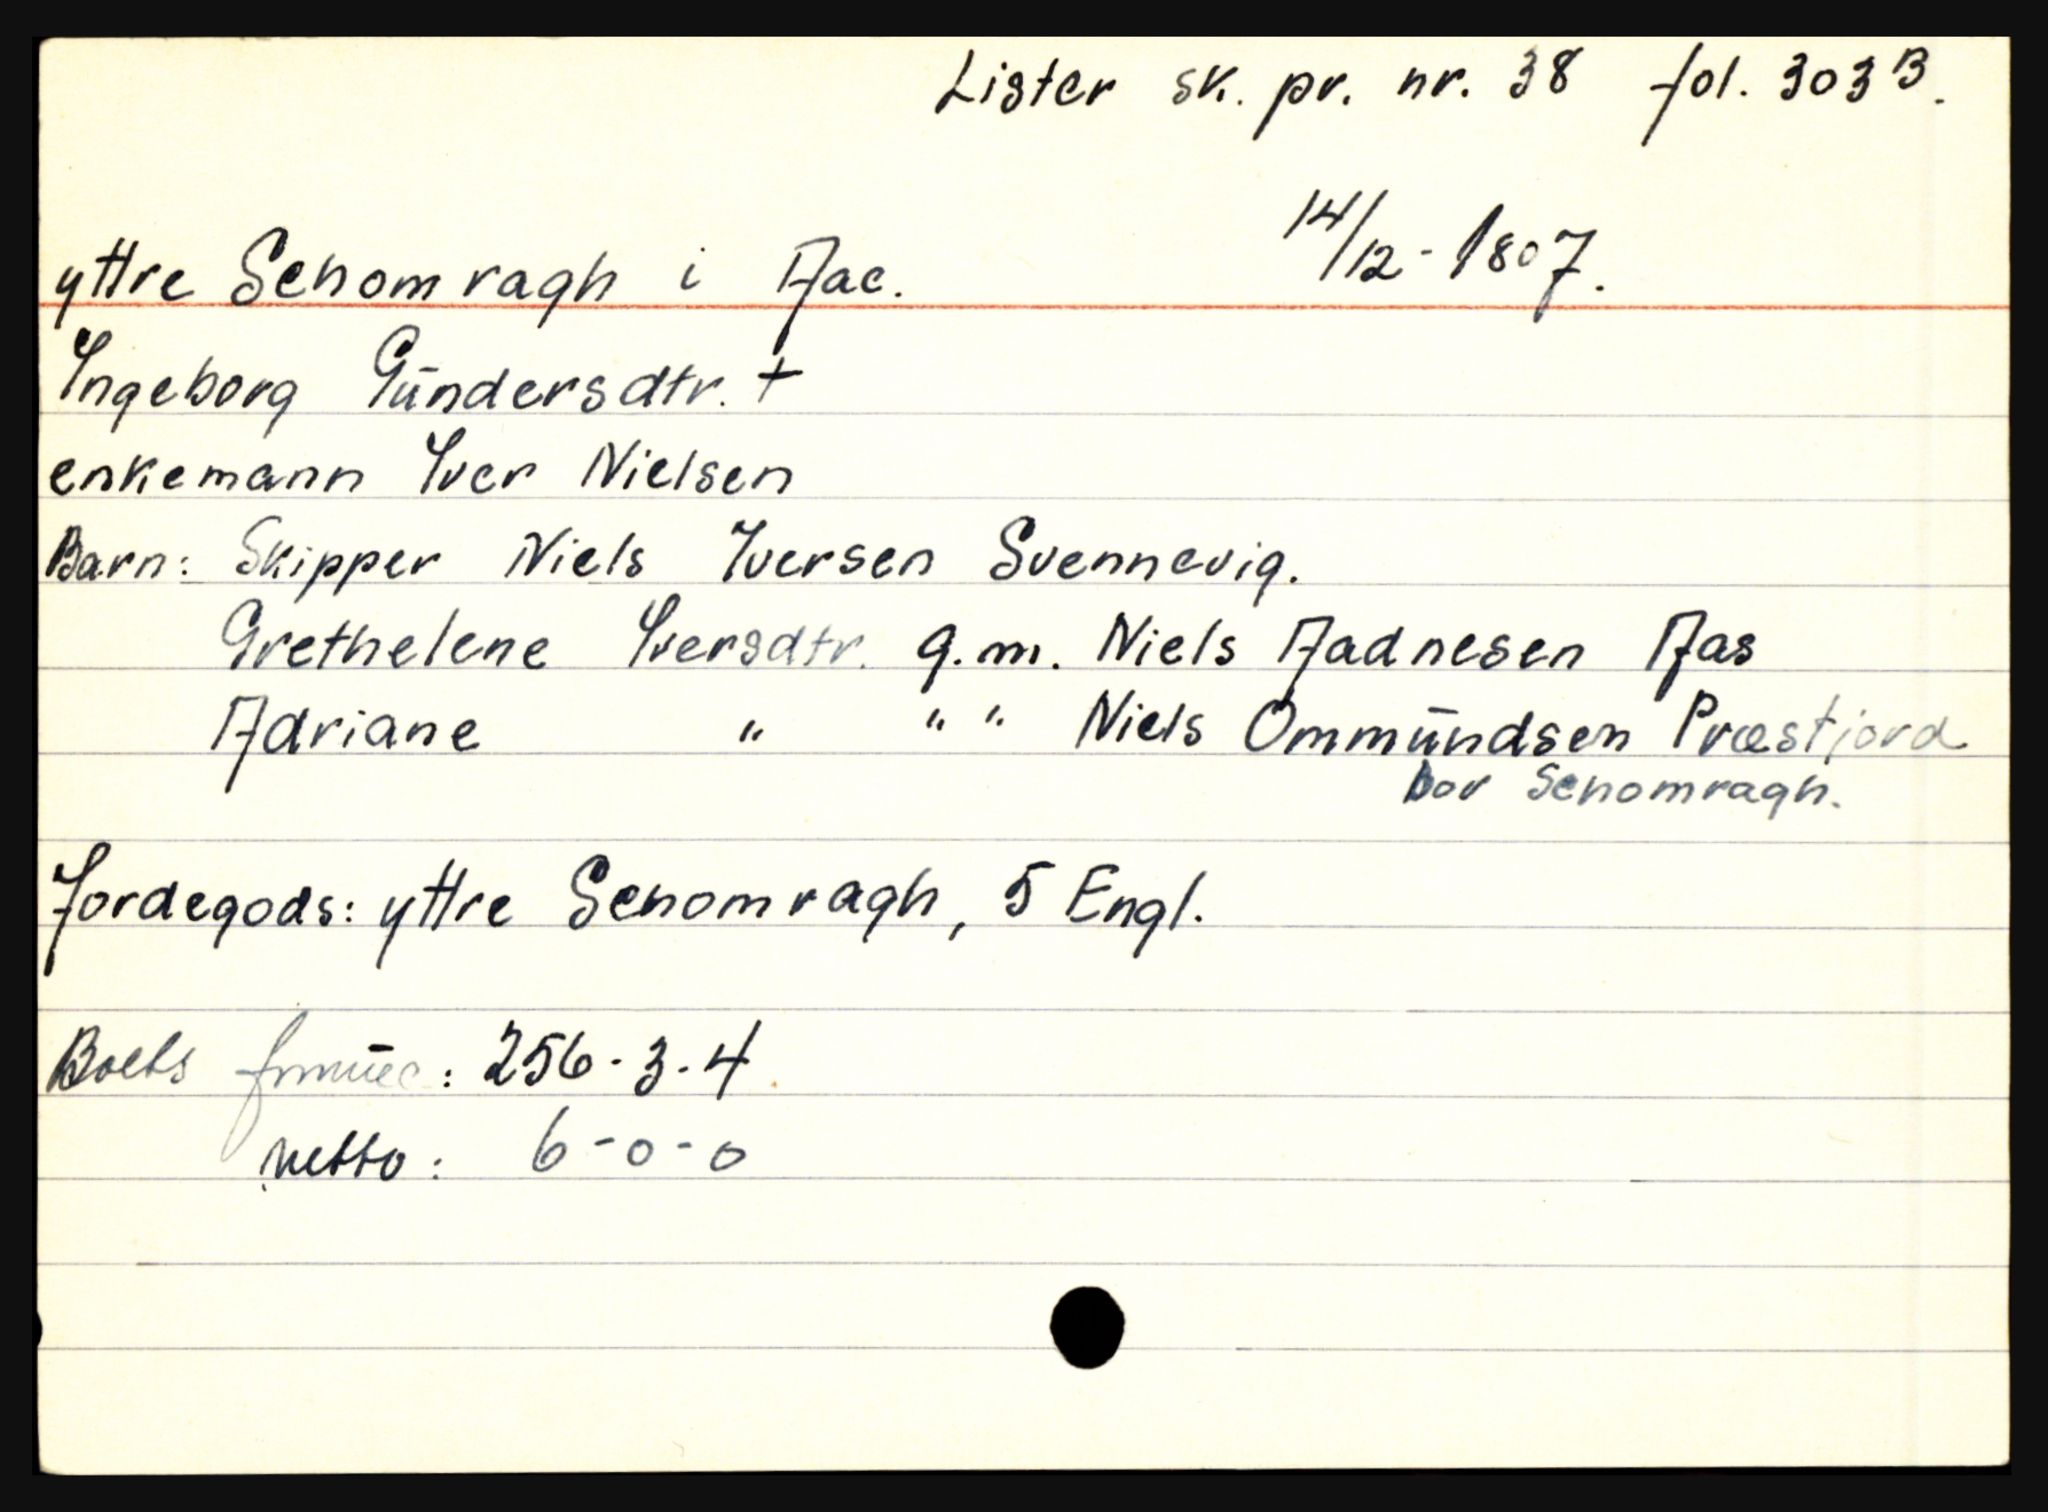 Lister sk. pr. nr. 38 fol. 303 B.
14/12 - 1807.
yttre Schomragh i Aac.
Ingeborg Gūndersdtr. +
enkemann Iver Nielsen
Barn: Skipper Niels Iversen Svennevig.
Grethelene Iversdtr. g.m. Niels Aadnesen Aas
Adriane " " " Niels Ommūndsen Præstjord
bor Schomragh.
Jordegods: yttre Schomragh, 5 Engl.
Boets formūe: 256-3-4
netto: 6-0-0